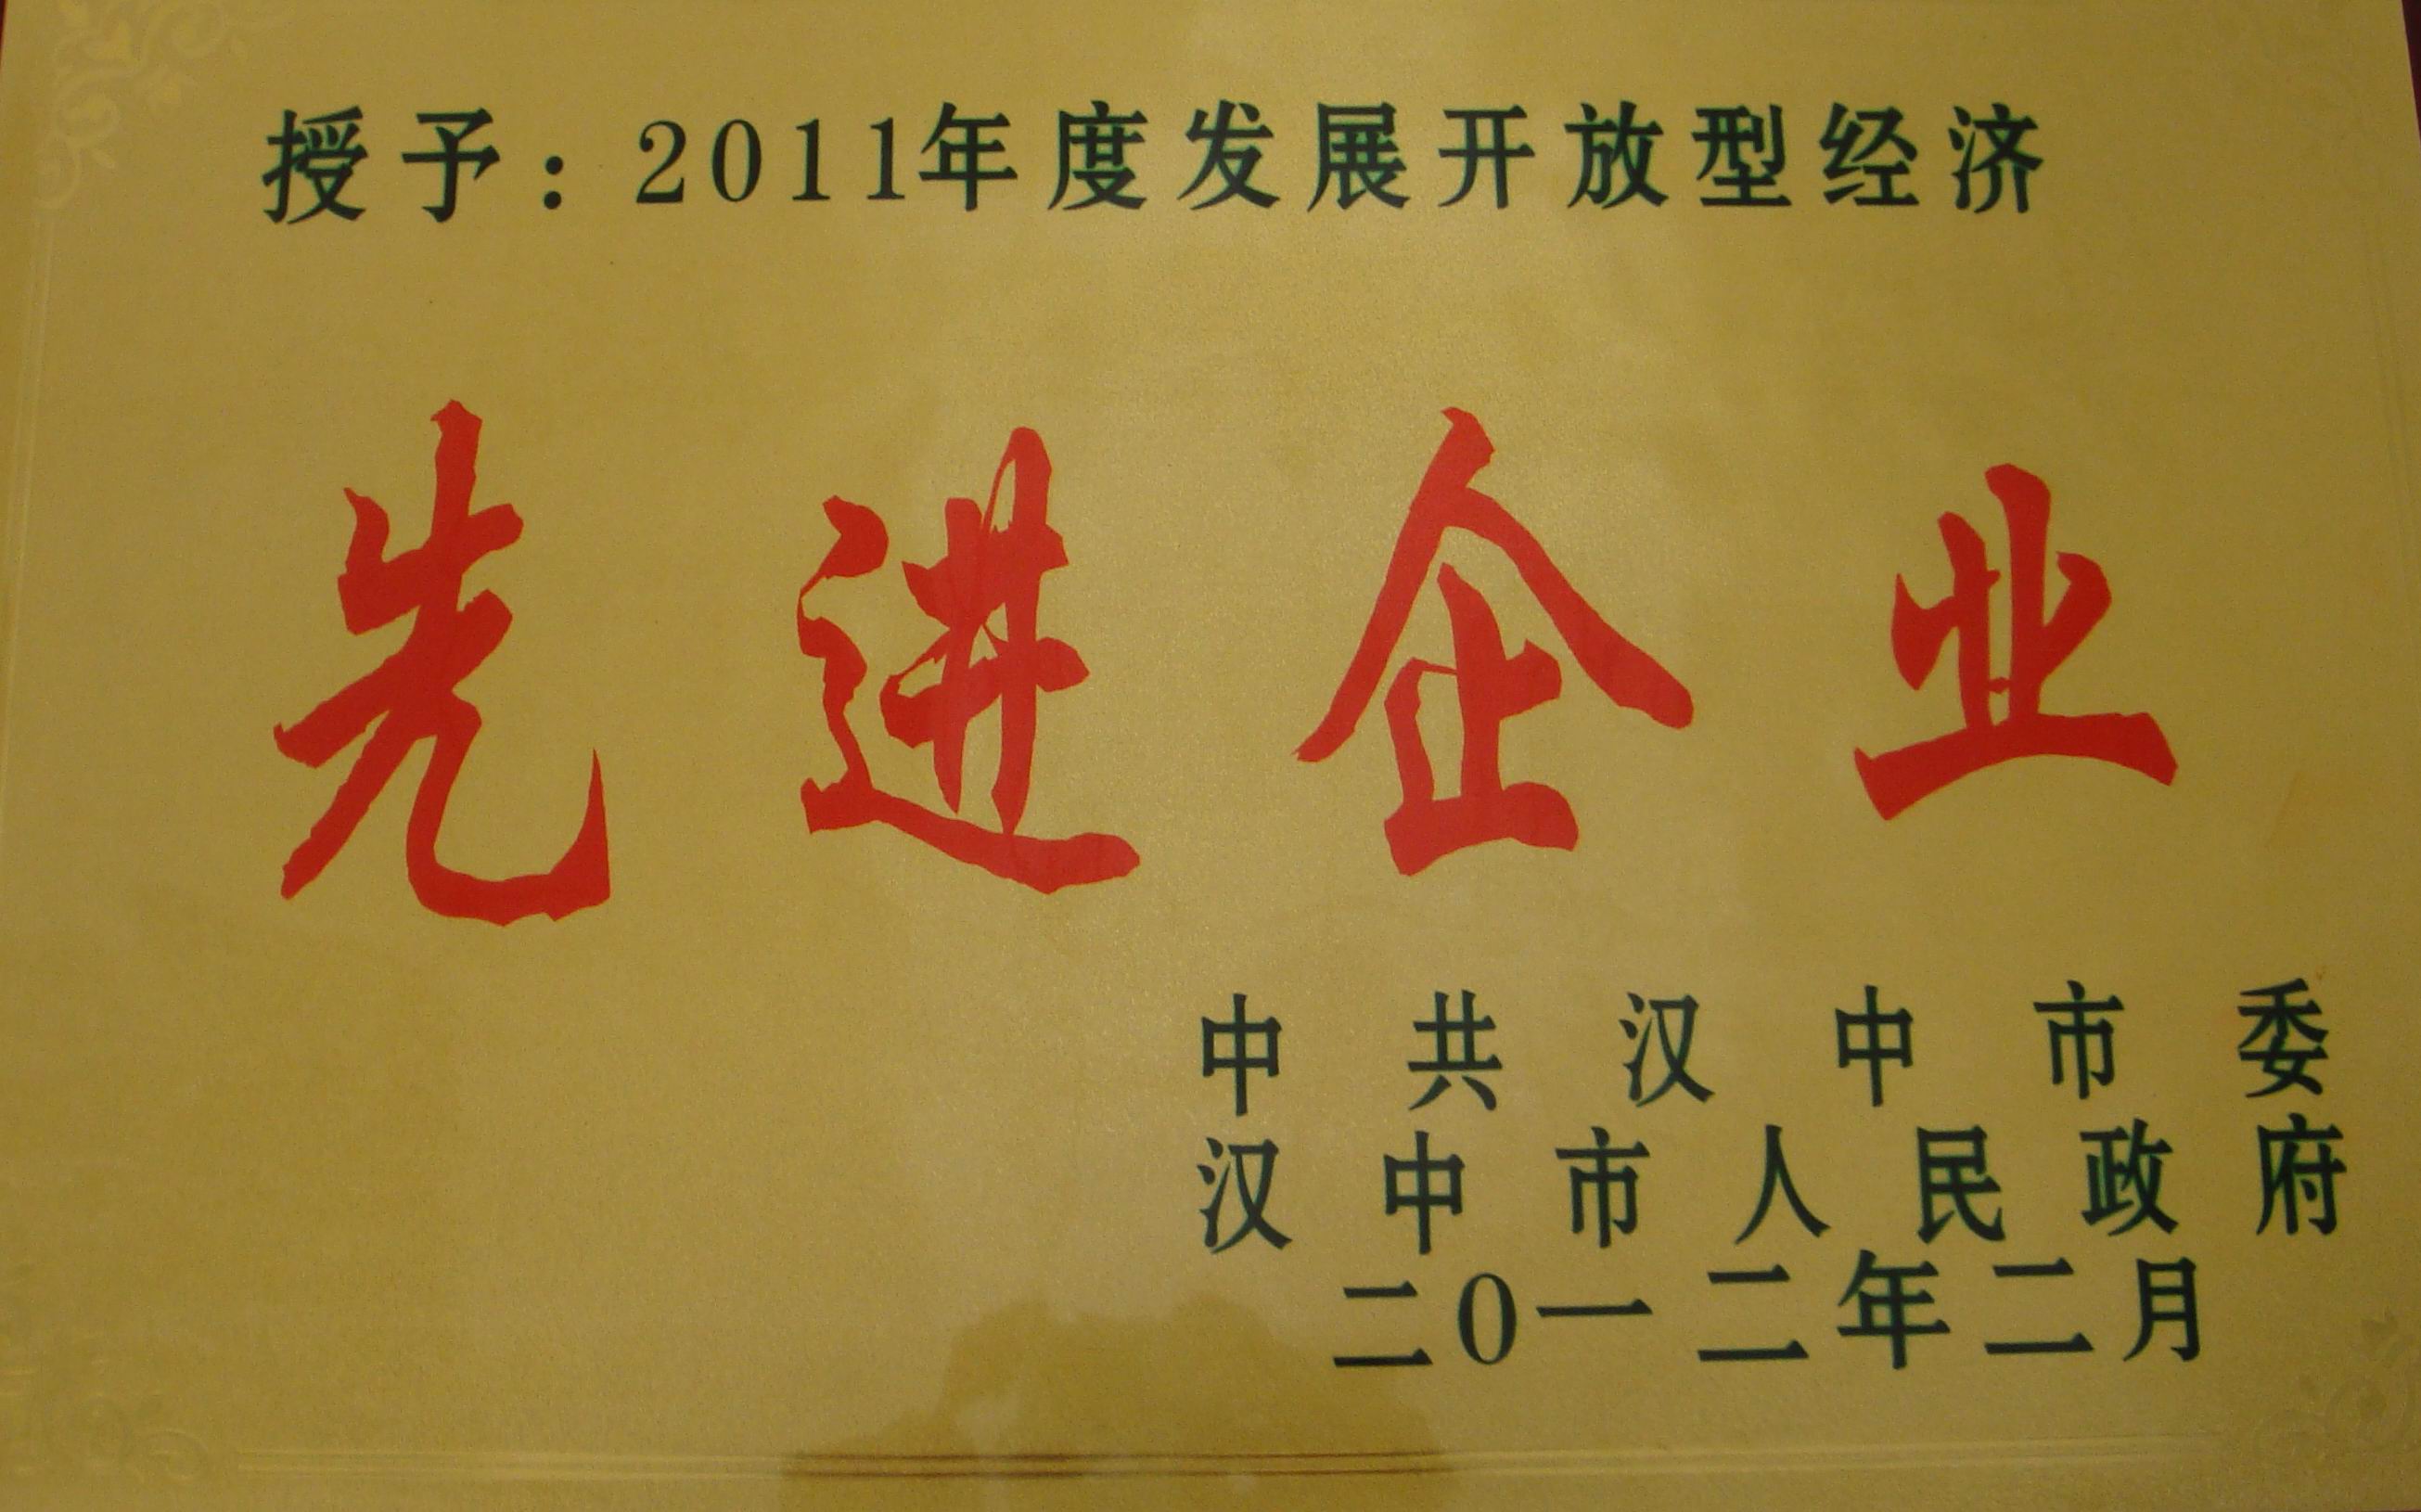 授予：2011年度发展开放型经济
先进企业
中共汉中市委
汉中市人民政府
二0一二年二月